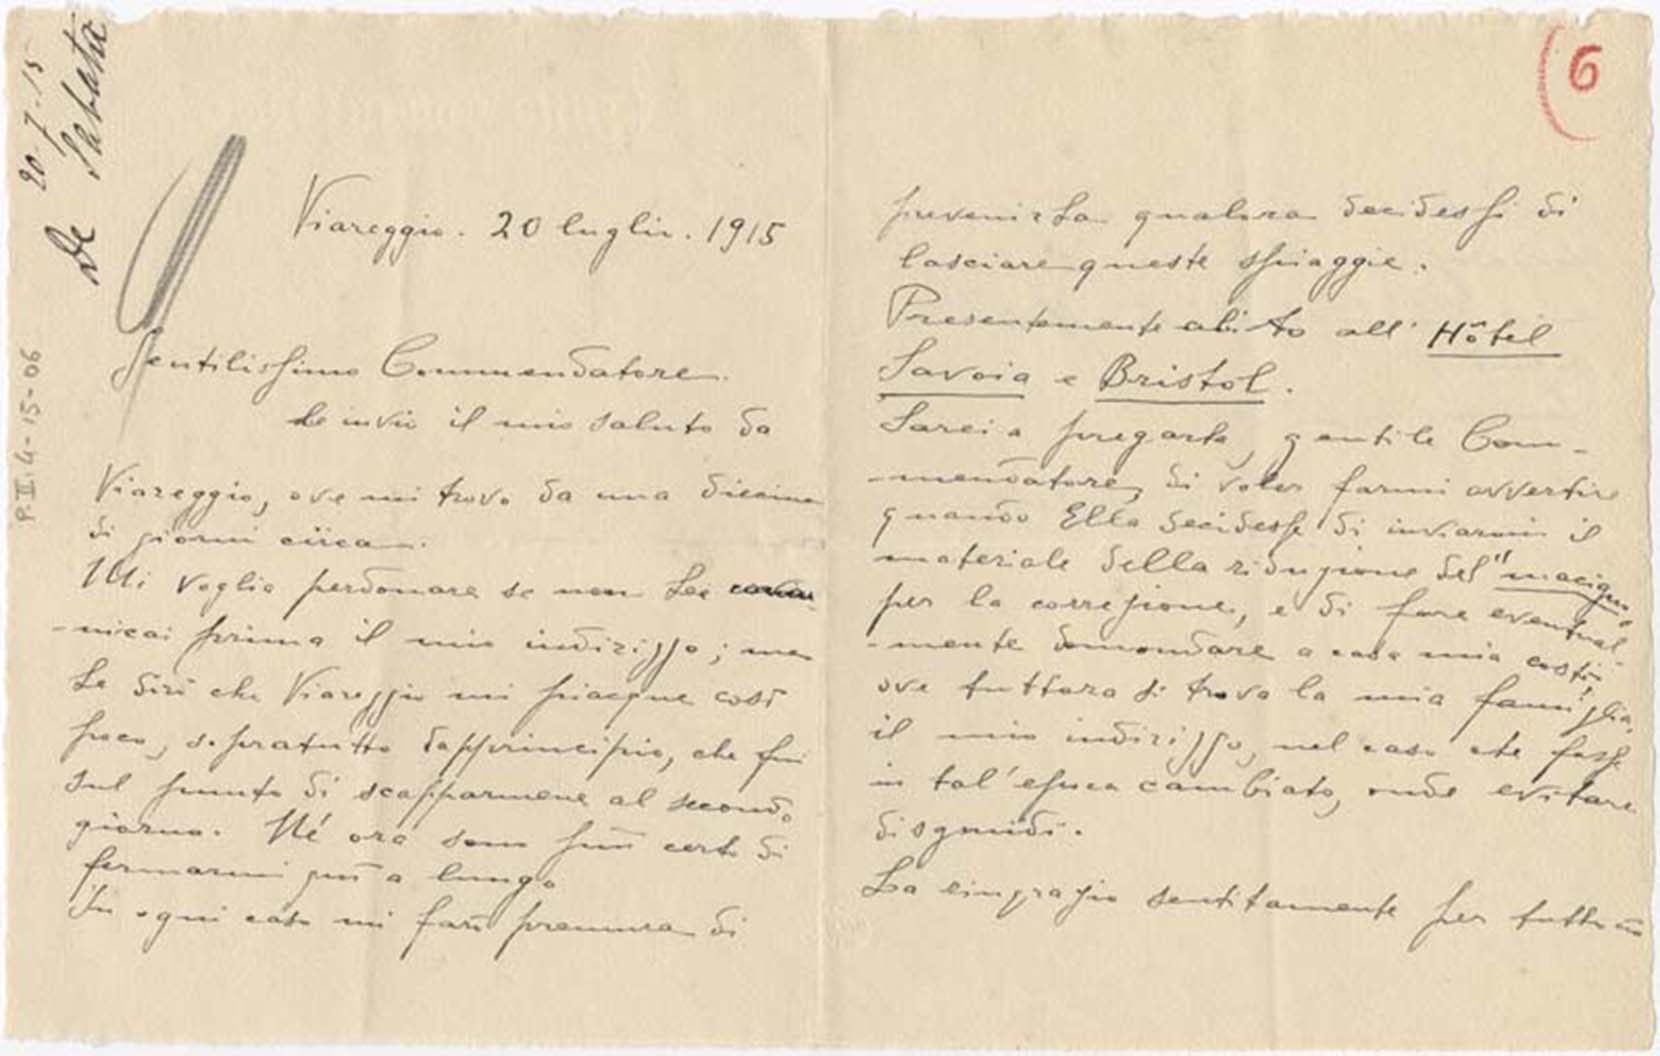 20-7-15
De Sabata
P.II.4-15-06
6
Viareggio. 20 luglio. 1915
Gentilissimo Commendatore.
Le invio il mio saluto da
Viareggio, ove mi trovo da una diecina
di giorni circa.
Mi voglia perdonare se non Le comu-
-nicai prima il mio indirizzo; ma
Le dirò che Viareggio mi piacque così
poco, sopratutto dapprincipio, che fui
sul punto di scapparmene al secondo
giorno. Né ora sono più certo di
fermarmi più a lungo
In ogni caso mi farò premura di
prevenirLa qualora decidessi di
lasciare queste spiaggie.
Presentemente abito all' Hôtel
Savoia e Bristol.
Sarei a pregarLa, gentile Com-
-mendatore, di voler farmi avvertire
quando Ella decidesse di inviarmi il
materiale della riduzione del "macigno"
per la correzione, e di fare eventual-
-mente domandare a casa mia costì
ove tuttora si trova la mia famiglia,
il mio indirizzo, nel caso che fosse
in tal'epoca cambiato, onde evitare
disguidi.
La ringrazio sentitamente per tutto ciò